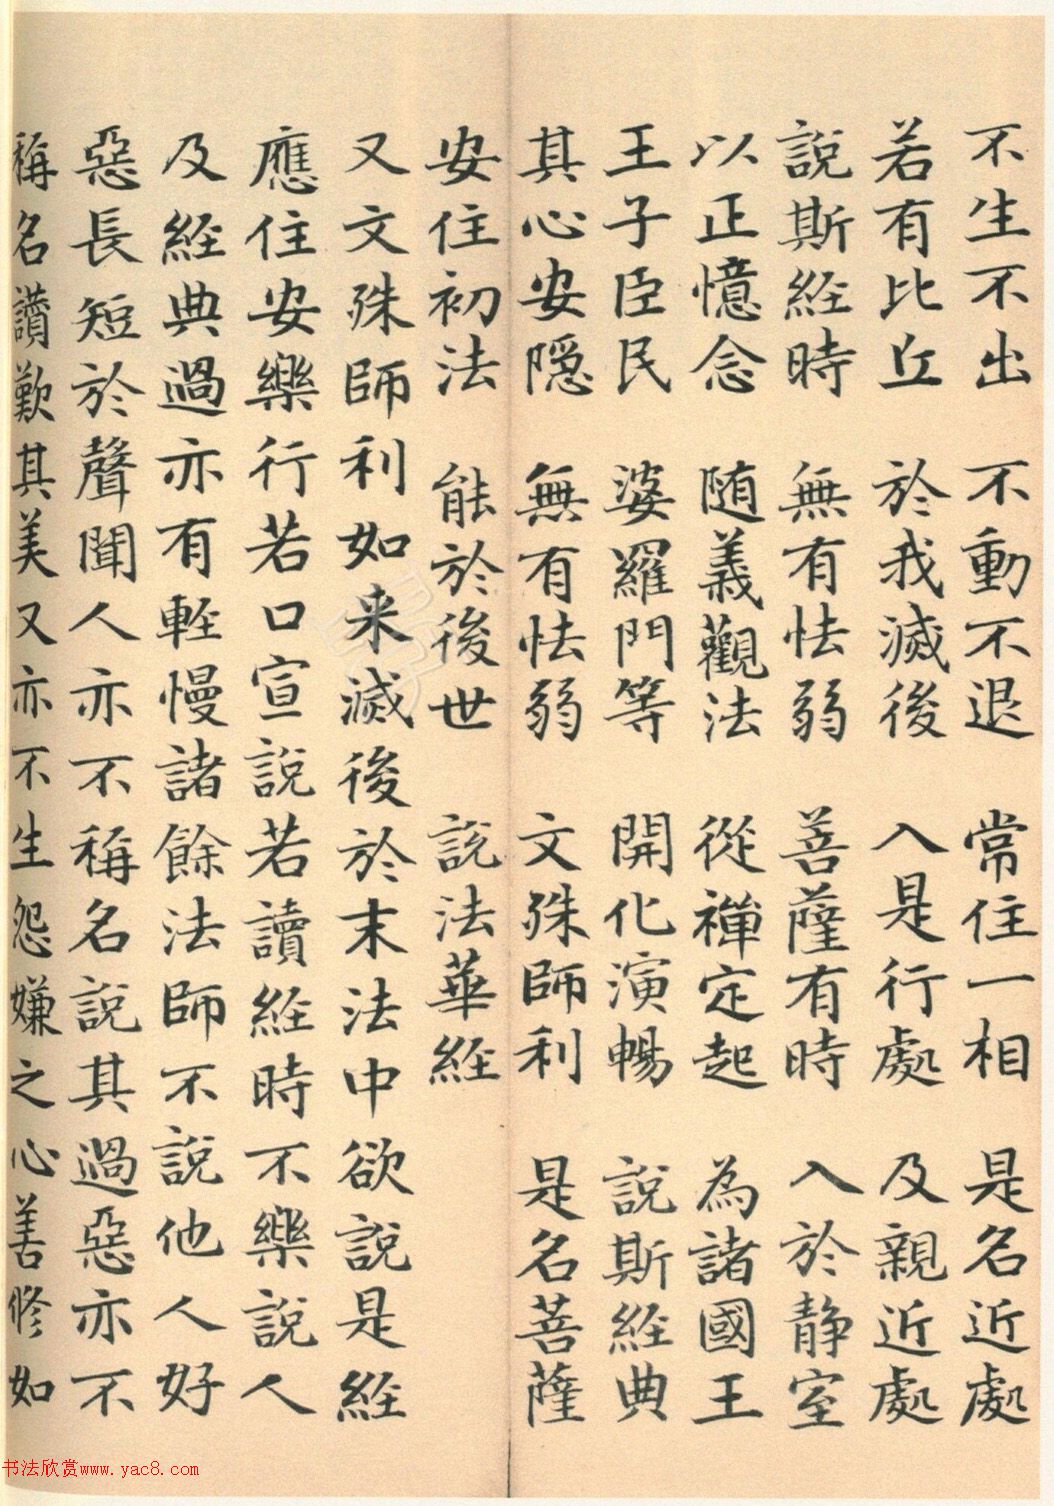 不生不出 不動不退 常住一相 是名近處
若有比丘 於我滅後 入是行處 及親近處
說斯經時 無有怯弱 菩薩有時 入於静室
以正憶念 随義觀法 從禪定起 為諸國王
王子臣民 婆羅門等 開化演暢 說斯經典
其心安隱 無有怯弱 文殊師利 是名菩薩
安住初法 能於後世 說法華經
又文殊師利如来滅後於末法中欲說是經
應住安樂行若口宣說若讀經時不樂說人
及經典過亦有輕慢諸餘法師不說他人好
惡長短於聲聞人亦不稱名說其過惡亦不
稱名讃歎其美又亦不生怨嫌之心善修如
书法欣赏www.yac8.com